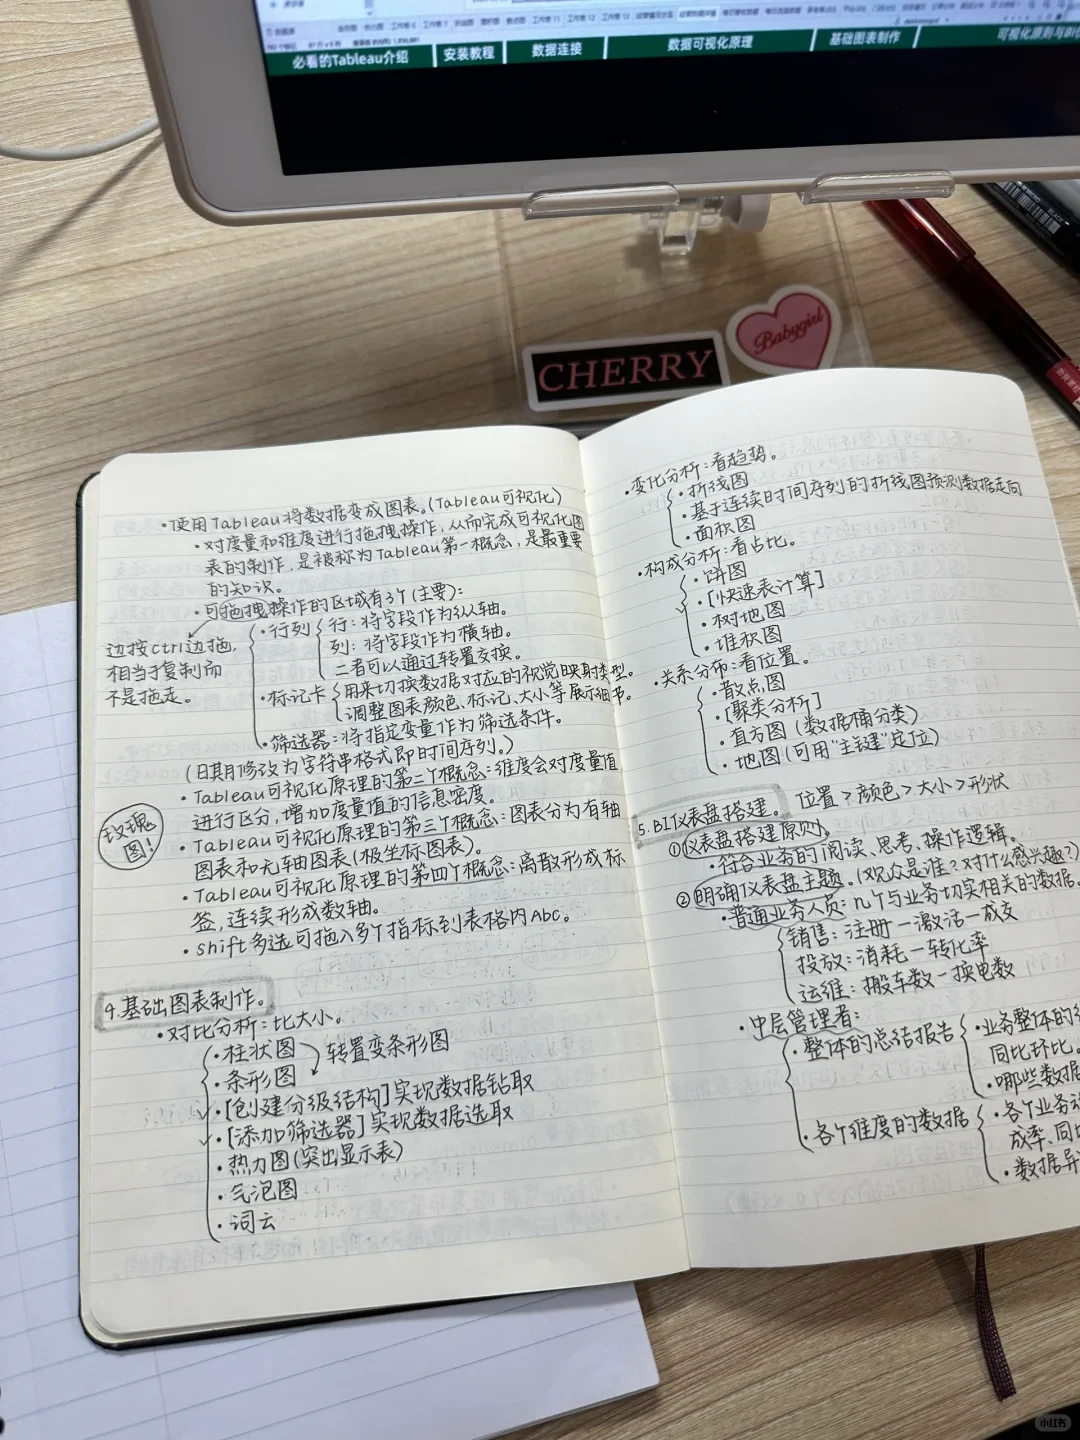 必看的Tableau介绍
安装教程
数据连接
数据可视化原理
基础图表制作
可视化原则与
CHERRY
Babygirl
·使用Tableau将数据变成图表。(Tableau可视化)
·对度量和维度进行拖拽操作，从而完成可视化图
表的制作，是被称为Tableau第一概念，是最重要
的知识。
·可拖拽操作的区域有3个(主要):
边按ctrl边拖，
相当于复制而
不是拖走。
·行列
行:将字段作为纵轴。
列:将字段作为横轴。
二者可以通过转置交换。
·标记卡
用来切换数据对应的视觉映射类型。
调整图表颜色、标记、大小等展示细节。
·筛选器:将指定变量作为筛选条件。
(日期修改为字符串格式即时间序列。)
·Tableau可视化原理的第二个概念:维度会对度量值
进行区分，增加度量值的信息密度。
玫瑰
图!
·Tableau可视化原理的第三个概念:图表分为有轴
图表和无轴图表(极坐标图表)。
·Tableau可视化原理的第四个概念:离散形成标
签，连续形成数轴。
·shift多选可拖入多个指标到表格内Abc。
4.基础图表制作。
·对比分析:比大小。
·柱状图
转置变条形图
·条形图
·[创建分级结构]实现数据钻取
·[添加筛选器]实现数据选取
·热力图(突出显示表)
·气泡图
·词云
·变化分析:看趋势。
·折线图
·基于连续时间序列的折线图预测数据走向
·面积图
·构成分析:看占比。
·饼图
·[快速表计算]
·树地图
·堆积图
·关系分布:看位置。
·散点图
·[聚类分析]
·直方图(数据桶分类)
·地图(可用"主键"定位)
5.BI仪表盘搭建。
位置>颜色>大小>形状
①仪表盘搭建原则。
·符合业务的阅读、思考、操作逻辑。
②明确仪表盘主题。(观众是谁?对什么感兴趣?)
·普通业务人员:几个与业务切实相关的数据。
销售:注册—激活—成交
投放:消耗—转化率
运维:搬车数—换电数
·中层管理者:
·整体的总结报告
·业务整体的
同比环比。
·哪些数据
·各个维度的数据
·各个业务
成率、同
·数据异
小红书